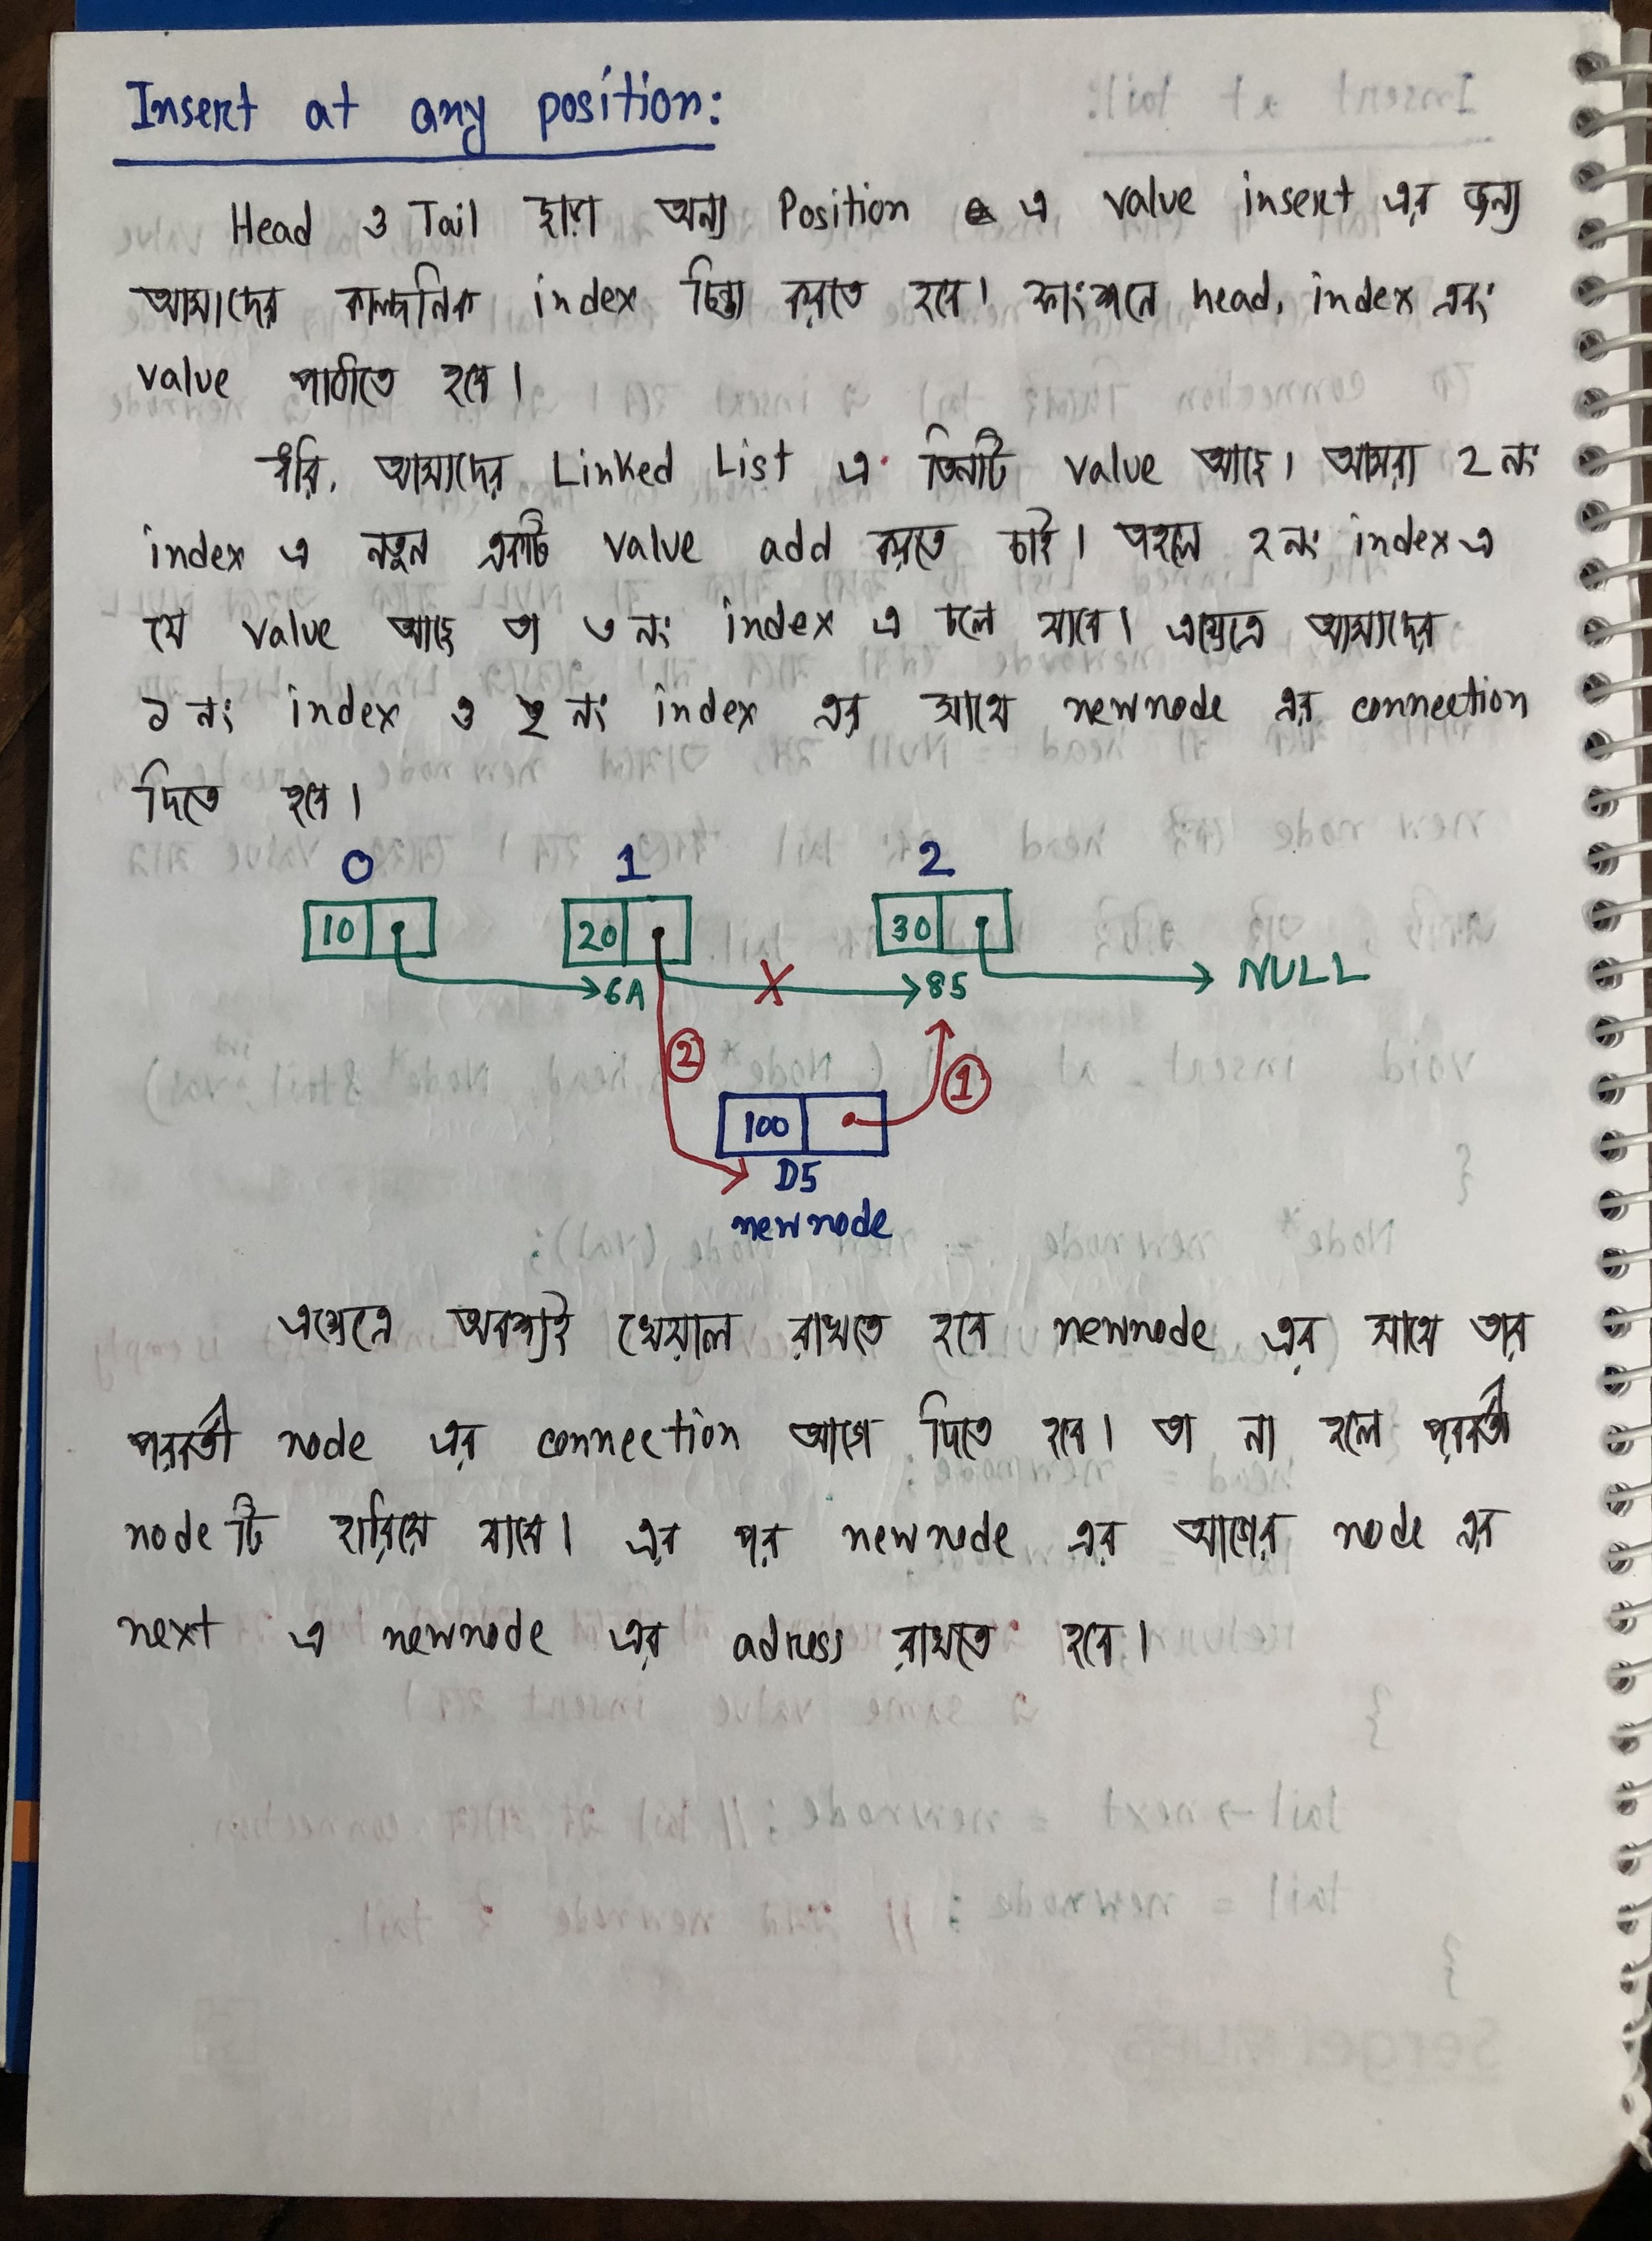 Insert at any position:
Head ও Tail ছাড়া অন্য Position এ value insert এর জন্য
আমাদের কাল্পনিক index চিন্তা করতে হবে। ফাংশনে head, index এবং
value পাঠাতে হবে।
ধরি, আমাদের Linked List এ তিনটি value আছে। আমরা 2 নং
index এ নতুন একটি value add করতে চাই। তাহলে ২ নং index এ
যে value আছে তা ৩ নং index এ চলে যাবে। এক্ষেত্রে আমাদের
১ নং index ও ২ নং index এর সাথে newnode এর connection
দিতে হবে।
0 1 2
10 20 30
6A 85 NULL
2 1
100
D5
newnode
এক্ষেত্রে অবশ্যই খেয়াল রাখতে হবে newnode এর সাথে তার
পরবর্তী node এর connection আগে দিতে হবে। তা না হলে পরবর্তী
node টি হারিয়ে যাবে। এর পর newnode এর আগের node এর
next এ newnode এর adress রাখতে হবে।